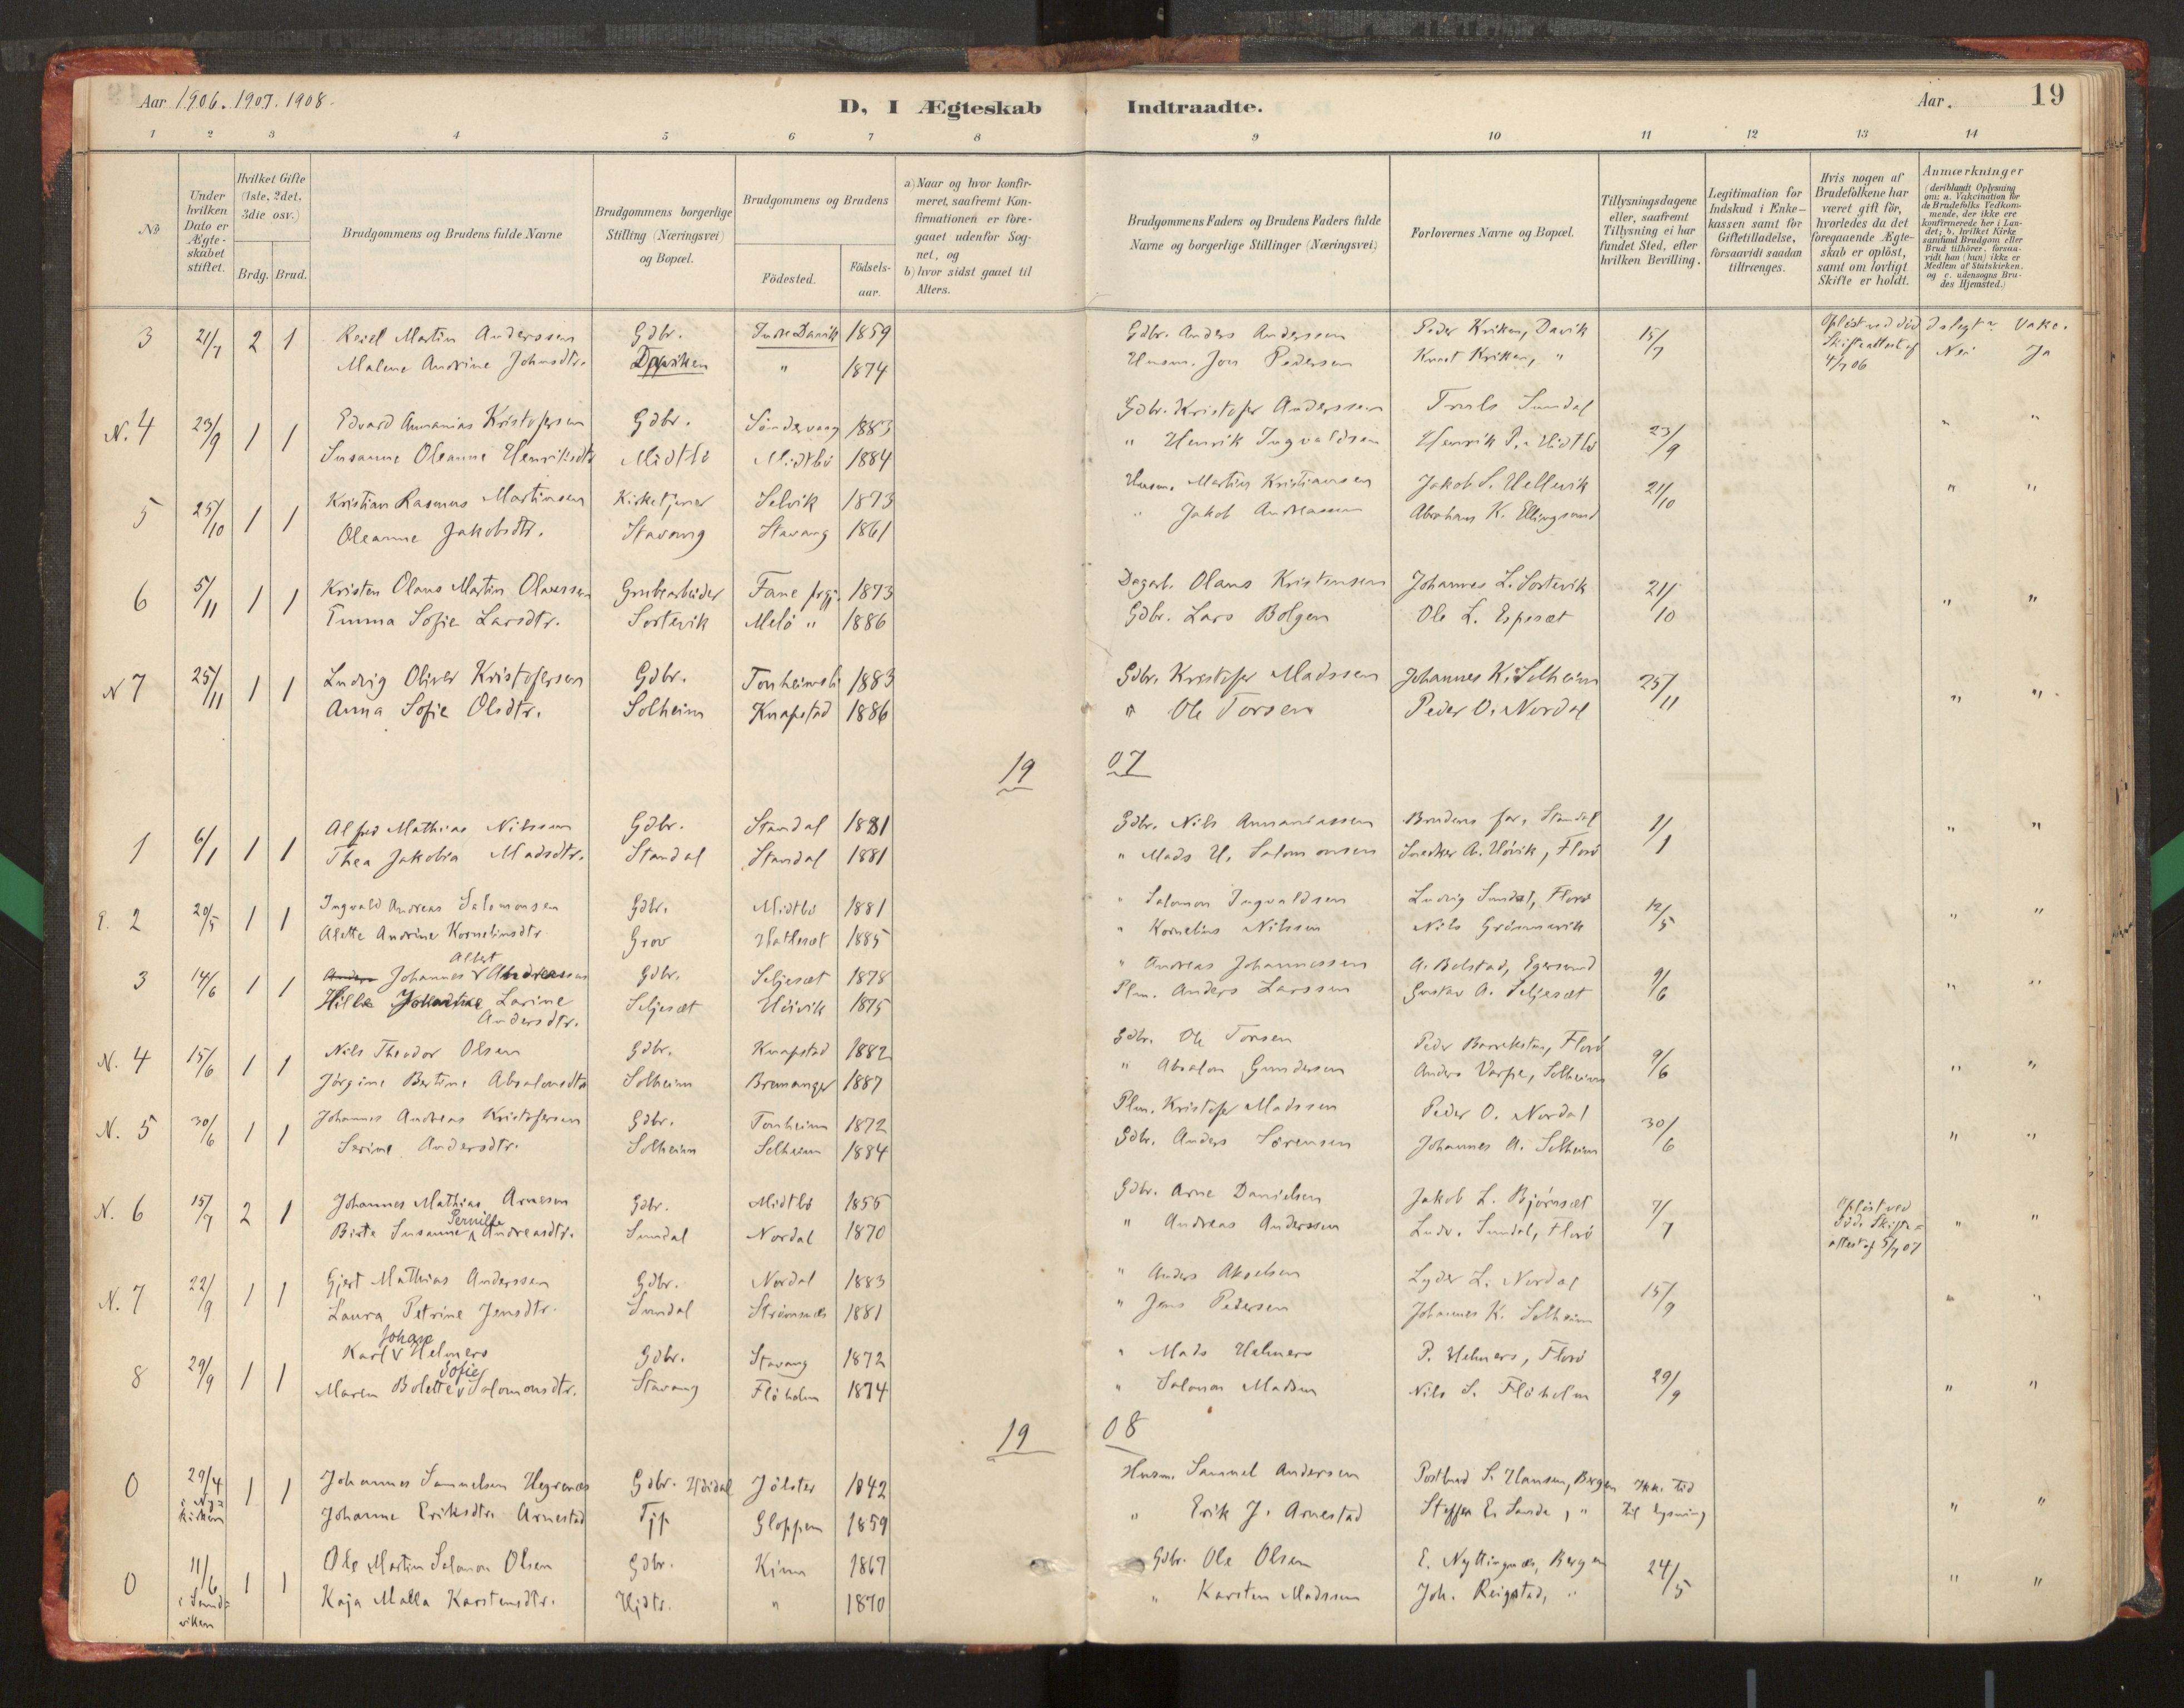 Aar 1906. 1907. 1908.
D, I Ægteskab Indtraadte.
Aar. 19
1 2 3 4 5 6 7 8 9 10 11 12 13 14
No
Under hvilken Dato er Ægte-skabet stiftet.
Hvilket Gifte (1ste, 2det, 3die osv.)
Brdg. Brud.
Brudgommens og Brudens fulde Navne
Brudgommens borgerlige Stilling (Næringsvei) og Bopæl.
Brudgommens og Brudens
Födested.
Födsels-aar.
a) Naar og hvor konfir-meret, saafremt Kon-firmationen er fore-gaaet udenfor Sog-net, og
b) hvor sidst gaaet til Alters.
Brudgommens Faders og Brudens Faders fulde Navne og borgerlige Stillinger (Næringsvei)
Forlovernes Navne og Bopæl.
Tillysningsdagene eller, saafremt Tillysning ei har fundet Sted, efter hvilken Bevilling.
Legitimation for Indskud i Enke-kassen samt for Giftetilladelse, forsaavidt saadan tiltrænges.
Hvis nogen af Brudefolkene har været gift för, hvorledes da det foregaaende Ægte-skab er oplöst, samt om lovligt Skifte er holdt.
Anmærkninger (deriblandt Oplysning om: a. Vakcination for de Brudefolks Vedkom-mende, der ikke ere konfirmerede her i Lan-det; b. hvilket Kirke samfund Brudgom eller Brud tilhörer, forsaa-vidt han (hun) ikke er Medlem af Statskirken, og c. udensogns Bru-des Hjemsted.)
3 21/7 2 1 Martin Anderssen Gdbr. Indre Davik 1859 Gdbr. Anders Anderssen Peder Kriken, Davik 15/7 Opløst ved död Vakc.
Malene Andrine Johnsdtr. " 1874 Husm. Jon Pedersen Knut Kriken, " Skifteattest af 4/7 06 Nei Ja
N. 4 23/9 1 1 Edvard Annanias Kristofersen Gdbr. 1883 Gdbr. Kristofer Anderssen Truls Sundal 23/9 " "
Susanne Oleanne Henriksdtr Midtbö Midtbö 1884 " Henrik Ingvaldsen Henrik Midtbö
5 25/10 1 1 Kristian Rasmus Martinsen Kirketjener Selvik 1873 Husm. Martin Kristiansen Jakob S. Hellevik 21/10 " "
Oleanne Jakobsdtr. Stavang Stavang 1861 " Jakob Andreassen Abraham K. Ellingsund
6 5/11 1 1 Kristen Olaus Martin Olaussen Grubearbeider Fane prgj. 1873 Dagarb. Olaus Kristensen Johannes L. Sortevik 21/10 " "
Emma Sofie Larsdtr. Sortevik Melö " 1886 Gdbr. Lars Bolgen Ole L. Espeset
N 7 25/11 1 1 Ludvig Oliver Kristofersen Gdbr. 1883 Gdbr. Kristofer Madssen Johannes K. Solheim 25/11 " "
Anna Sofie Olsdtr. Solheim Knapstad 1886 " Ole Torsen Peder O. Nordal
19 07
1 6/1 1 1 Alfred Mathias Nilssen Gdbr. Standal 1881 Gdbr. Nils Annaniassen Brudens far, Standal 1/1 " "
Thea Jakobia Madsdtr. Standal Standal 1881 " Mads H. Salomonsen Snedker A. Hövik, Florö
P. 2 20/5 1 1 Ingvald Andreas Salomonsen Gdbr. Midtbö 1881 " Salomon Ingvaldsen Ludvig Sundal, Florö 12/5 " "
Alette Andrine Korneliusdtr. Grov Hatleset 1885 " Kornelius Nilssen Nils Grönnevik
3 14/6 1 1 Johannes Albert Andreassen Gdbr. Seljesæt 1878 " Andreas Johannessen A. Bolstad, Egersund 9/6 " "
Larine Andersdtr. Seljesæt Hövik 1875 Plm. Anders Larssen Gustav A. Seljesæt
N. 4 15/6 1 1 Nils Theodor Olsen Gdbr. Knapstad 1882 Gdbr. Ole Torsen Peder Barrekstein, Florö 9/6 " "
Jörgine Bertine Absalomsdtr Solheim Bremanger 1887 " Absalon Gundersen Anders Varpe, Solheim
N. 5 30/6 1 1 Johannes Andreas Kristofersen Gdbr. Tonheim 1872 Plm. Kristofer Madssen Peder O. Nordal 30/6 " "
Serine Andersdtr. Solheim Solheim 1884 Gdbr. Anders Sörensen Johannes A. Solheim
N. 6 15/7 2 1 Johannes Mathias Arnesen Gdbr. Midtbö 1855 Gdbr. Arne Danielsen Jakob L. Bjørnset 7/7 Opløst ved död. Skifte= attest af 5/7 07 " "
Birte Susanne Pernille Andreasdtr. Sundal Nordal 1870 " Andreas Anderssen Ludv. Sundal, Florö
N. 7 22/9 1 1 Gjert Mathias Anderssen Gdbr. Nordal 1883 " Anders Akselsen Lyder L. Nordal 15/9 " "
Laura Petrine Jensdtr. Sundal Strömsnes 1881 " Jens Pedersen Johannes K. Solheim
8 29/9 1 1 Karl Johan Helmers Gdbr. Stavang 1872 " Mads Helmers P. Helmers, Florö 29/9 " "
Maren Bolette Sofie Salomonsdtr. Stavang Flöholm 1874 " Salomon Madsen Nils S. Flöholm
19 08
0 29/4 i Ny= kirken 1 1 Johannes Samuelsen Hegrenes Gdbr. Jölster 1842 Husm. Samuel Andersen Postbud S. Hansen, Bergen Ikke tid til lysning " "
Johanne Eriksdtr. Arnestad Tjp Gloppen 1859 " Erik J. Arnestad Steffen E. Sande, "
0 11/6 i Sand= viken 1 1 Ole Martin Salomon Olsen Gdbr. Kinn 1867 Gdbr. Ole Olsen E. Nyttingnes, Bergen 24/5 " "
Kaja Malla Karstensdtr. Hjdtr. " 1870 " Karsten Madssen Joh. Reigstad, "